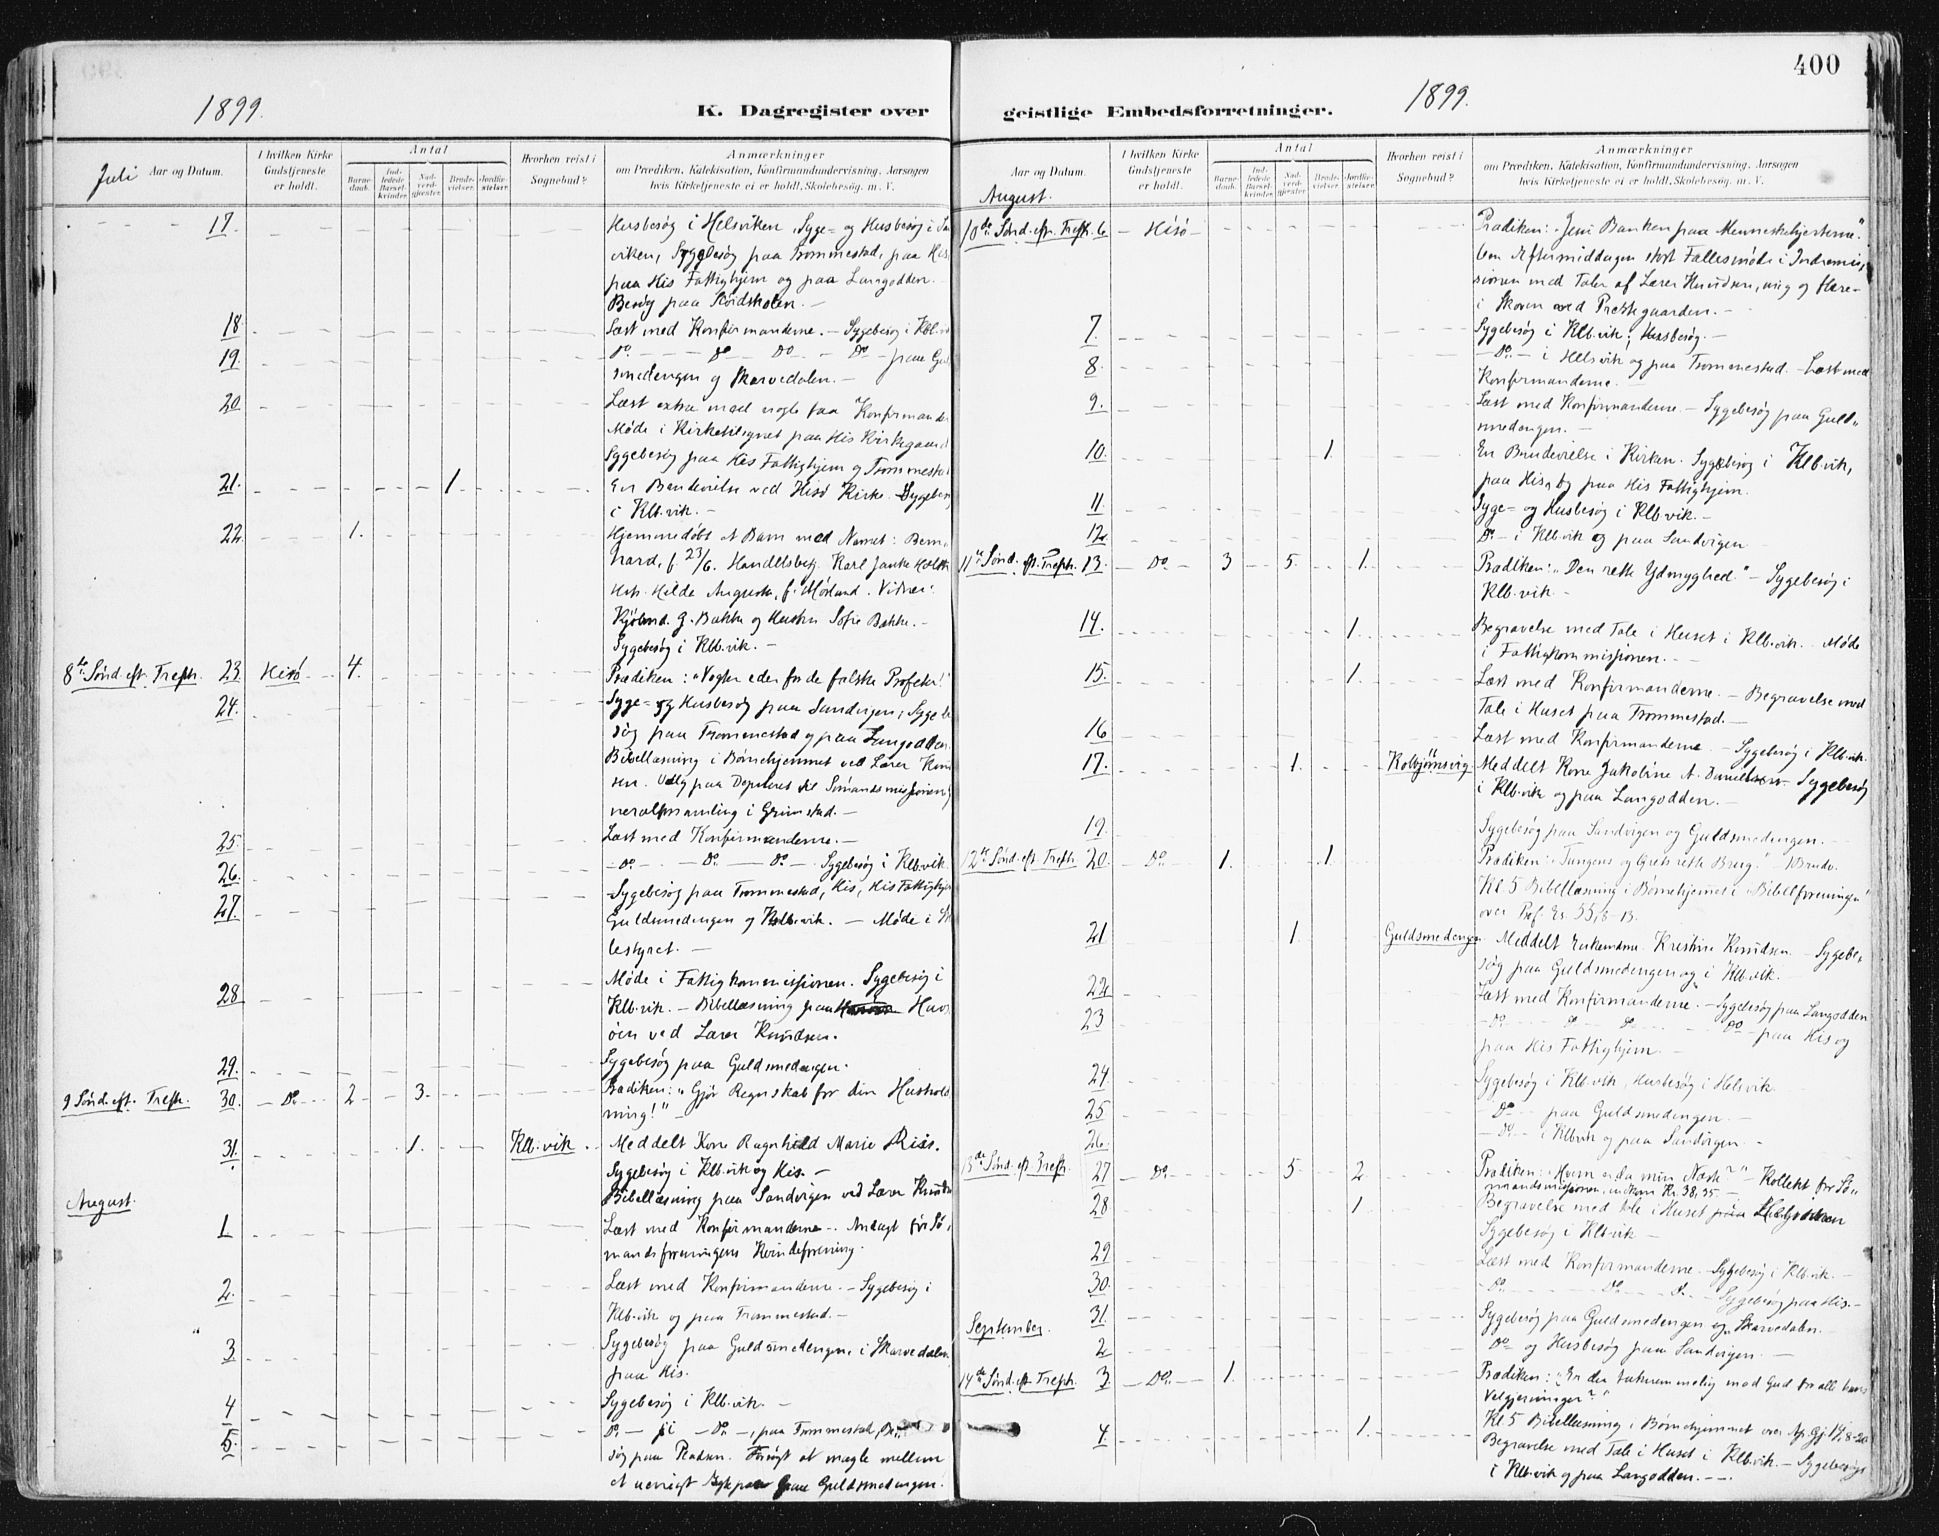 1899.
K. Dagregister over
Juli
Aar og Datum.
I hvilken Kirke Gudstjeneste er holdt.
Antal
Barnedaab.
Indledede Barselkvinder.
Nadverdgjester.
Brudevielser.
Jordfæstelser.
Hvorhen reist i Sognebud?
Anmærkninger
om Prædiken, Katekisation, Konfirmandundervisning, Aarsagen
hvis Kirketjeneste ei er holdt, Skolebesøg m. V.
17. Husbesøg i Helsviken, Syge= og Husbesøg i
viken, Sygebesøg paa Trommestad, paa His,
paa His Fattighjem og paa Langodden.
Besøg paa
18 Læst med Konfirmanderne. – Sygebesøg i Klb.
19. Do. – Do – Do – Do – paa
smedengen og Skarvedalen. –
20 Læst extra med nogle faa Konfirmander
Møde i Kirketilsynet paa His Kirkegaard
Sygebesøg paa His Fattighjem og Trommestad
21. 1 En Brudevielse ved Hisø Kirke. Sygebesøg
i Klb.vik. –
22. 1. Hjemmedøbt et Barn med Navnet: Bern=
hard, f. 23/6. Handelsbetj. Karl
Hilde Augusta, f. Mørland. Vidner:
Kjøbmd. G. Bakke og Hustru Sofie Bakke. –
Sygebesøg i Klb.vik. –
8de Sønd. eft. Trefh. 23. Hisø 4. Prædiken: "Vogter eder for de falske Profeter!"
24. Syge= og Husbesøg paa Sandvigen; Sygebe
søg paa Trommestad og paa Langodden.
Bibellæsning i Børnehjemmet ved Lærer
sen. Valg paa Deputeret til Sømandsmissionens
neralforsamling i Grimstad. –
25. Læst med Konfirmanderne. –
26. – Do. – Do. – Do. – Sygebesøg i Klb.vik.
27. Sygebesøg paa Trommestad, His, His Fattighjem
Guldsmedengen og Klb.vik. – Møde i
lestyret. –
28 Møde i Fattigkommissionen. Sygebesøg i
Klb.vik. – Bibellæsning paa Hav
øen ved Lærer Knudsen.
29. Sygebesøg paa Guldsmedengen.
9 Sønd. eft. Trefh. 30. – Do. 2 3. Prædiken: "Gjør Regnskab for din Hushold
ning!" –
31. 1. Klb.vik Meddelt Kone Ragnhild Marie Riis.
Sygebesøg i Klb.vik og His. –
Bibellæsning paa Sandvigen ved Lærer
August.
1 Læst med Konfirmanderne – . Andagt for Sø=
mandsforeningens Kvindeforening.
2. Læst med Konfirmanderne. – Sygebesøg i
Klb.vik og paa Trommestad. –
3 Sygebesøg paa Guldsmedengen, i Skarvedalen
paa His.
4 Sygebesøg i Klb.vik. –
5. Do. – i – Do. –, paa Trommestad, Be
søg paa mægle mellem
et uenigt paa Guldsmedengen.
400
1899.
geistlige Embedsforretninger.
Aar og Datum.
August.
I hvilken Kirke Gudstjeneste er holdt.
Antal
Barnedaab.
Indledede Barselkvinder.
Nadverdgjester.
Brudevielser.
Jordfæstelser.
Hvorhen reist i Sognebud?
Anmærkninger
om Prædiken, Katekisation, Konfirmandundervisning, Aarsagen
hvis Kirketjeneste ei er holdt, Skolebesøg m. V.
10de Sønd. eft. Trefh. 6 – Hisø – Prædiken: "Jesu Banken paa Menneskehjerterne."
Om Eftermiddagen stort Fællesmøde i Indremis=
sionen med Taler af Lærer Knudsen, mig og flere –
i Skoven ved Prestegaarden. –
7. Sygebesøg i Klb.vik; Husbesøg. –
8. – Do. – i Helsvik og paa Trommestad. – Læst med
Konfirmanderne.
9. Læst med Konfirmanderne. – Sygebesøg paa Guld=
smedengen. –
10. 1. En Brudevielse i Kirken. Sygebesøg i Klb.vik,
paa His, og paa His Fattighjem.
11. Syge= og Husbesøg i Klb.vik. –
12. Do. – i Klb.vik og paa Sandvigen
11te Sønd. eft. Trefh. 13. – Do. 3 5. 1. Prædiken: "Den rette Ydmyghed." – Sygebesøg i
Klb.vik. –
14. 1. Begravelse med Tale i Huset i Klb.vik. Møde
i Fattigkommissionen. –
15. 1. Læst med Konfirmanderne. – Begravelse med
Tale i Huset paa Trommestad. –
16 Læst med Konfirmanderne. – Sygebesøg i Klb.vik.
17. 1. Kolbjørnsvig. Meddelt Kone Jakobine A. Danielsen. – Sygebesøg
i Klb.vik og paa Langodden. –
19. Sygebesøg paa Sandvigen og Guldsmedengen. –
12te Sønd. eft. Trefh. 20. – Do. 1. 1. Prædiken: "Tungens og rette Brug." 1 Brudv.
Kl. 5 Bibellæsning i Børnehjemmet i "Bibelforeningen"
over Prof. Es. 55, 8-13.
21 1. Guldsmedengen. Meddelt Enkemdm. Kristine Knudsen. – Sygebe=
søg paa Guldsmedengen og i Klb.vik. –
22 Læst med Konfirmanderne. – Sygebesøg paa Langodden
23 – Do. – Do – Do – Do – paa His og
paa His Fattighjem. –
24. Sygebesøg i Klb.vik, Husbesøg i Helsvik.
25 – Do. – paa Guldsmedengen. –
26. – Do. – i Klbvik og paa Sandvigen. –
13de Sønd. eft. Trefh. 27 Do. 5. 2 Prædiken: "Hvem er da min Næste?" – Kollekt for Sø=
mandsmissionen, indkom Kr. 38,35. –
28 1. Begravelse med Tale i Huset paa
Sygebesøg i Klb.vik –
29 Læst med Konfirmanderne. Sygebesøg i Klb.vik. –
30. – Do. – Do. – Do. – Sygebesøg paa His. –
31. Sygebesøg paa Guldsmedengen og Skarvedalen.
September.
2 Do. og Husbesøg paa Sandvigen. –
14de Sønd. eft. Trefh. 3. – Do. – 1. Prædiken: "Er du taknemmelig mod Gud for alle hans
Velgjerninger?"
Kl 5 Bibellæsning i Børnehjemmet over Ap. Gj. 14, 8-20
4. 1. Begravelse med Tale i Huset i Klb.vik. – Sygebesøg
i Klb.vik og paa Langodden. –